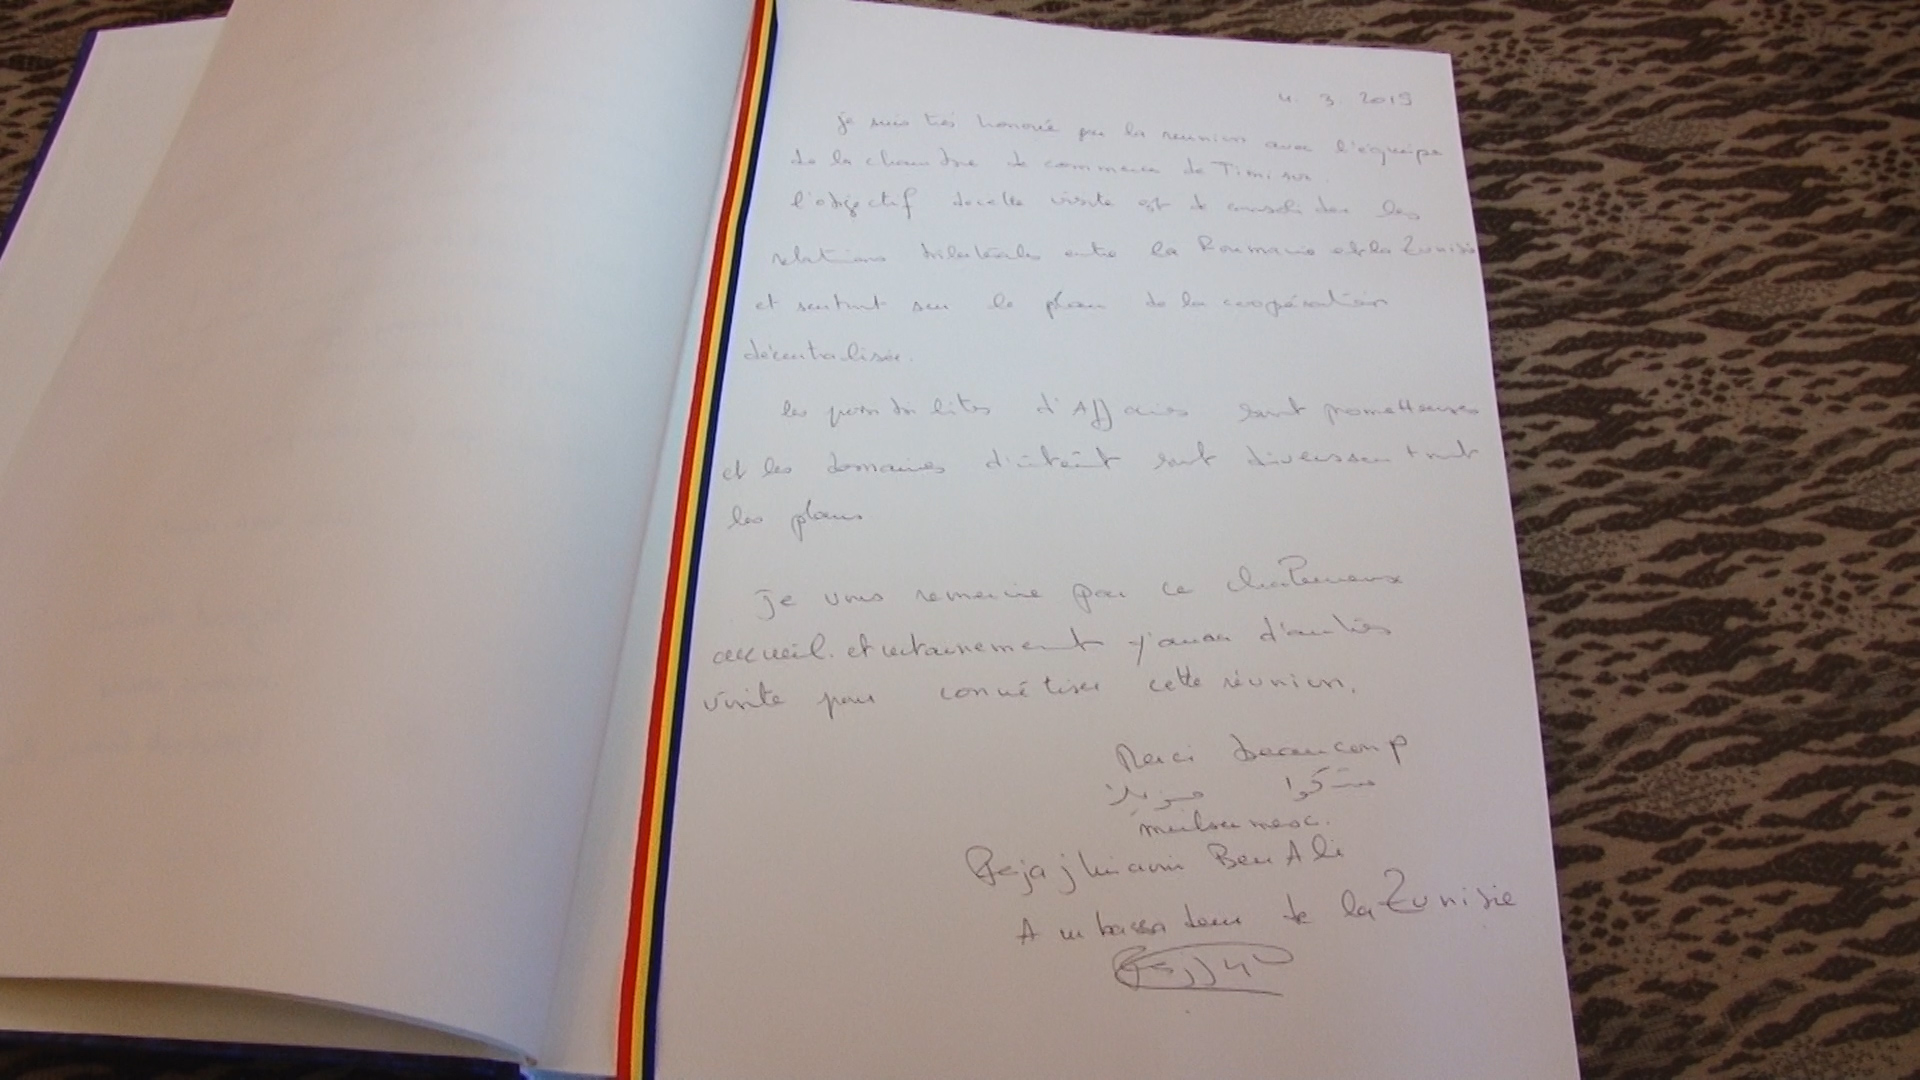 4. 3. 2019
je suis très honoré par la reunion avec l'équipe
de la chambre de commerce de Timisoa
l'objectif de cette visite est de consolider les
relations bilatérales entre la Roumanie et la Tunisie
et surtout sur le plan de la coopération
décentralisée.
les possibilités d'Affaires sont prometteuses
et les domaines d'intérêt sont divers sur tout
les plans
je vous remercie pour ce chaleureux
accueil. et certainement y'aura d'autres
visite pour concrétiser cette réunion.
Merci beaucoup
شكرا جزيلا
multumesc.
Ben Ali
Ambassadeur de la Tunisie